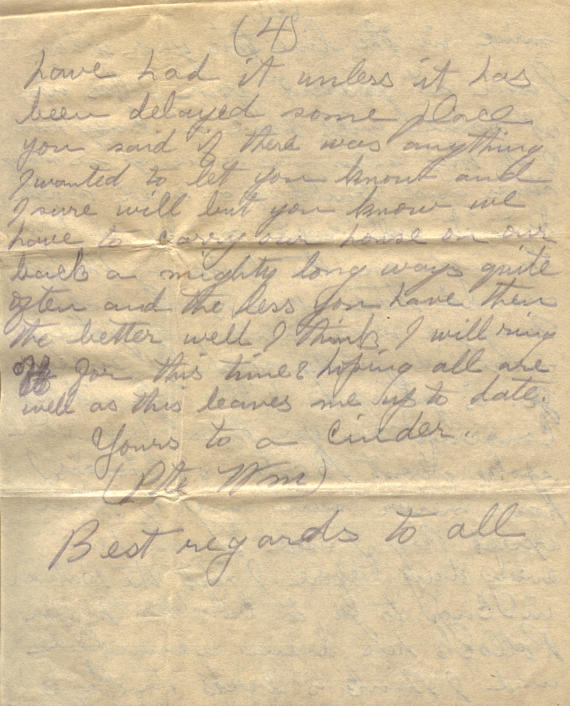 (4)
have had it unless it has
been delayed some place
you said if there was anything
I wanted to let you know and
I sure will but you know we
have to carry our house on our
back a mighty long ways quite
often and the less you have then
the better well I think I will ring
off for this time & hoping all are
well as this leaves me up to date.
Yours to a Cinder.
(Pte Wm)
Best regards to all